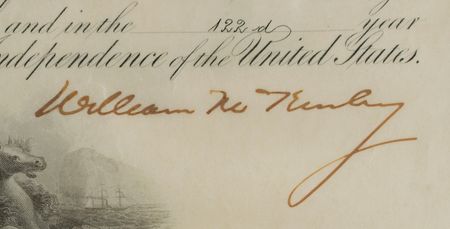 and in the 122d year
Independence of the United States.
William McKinley